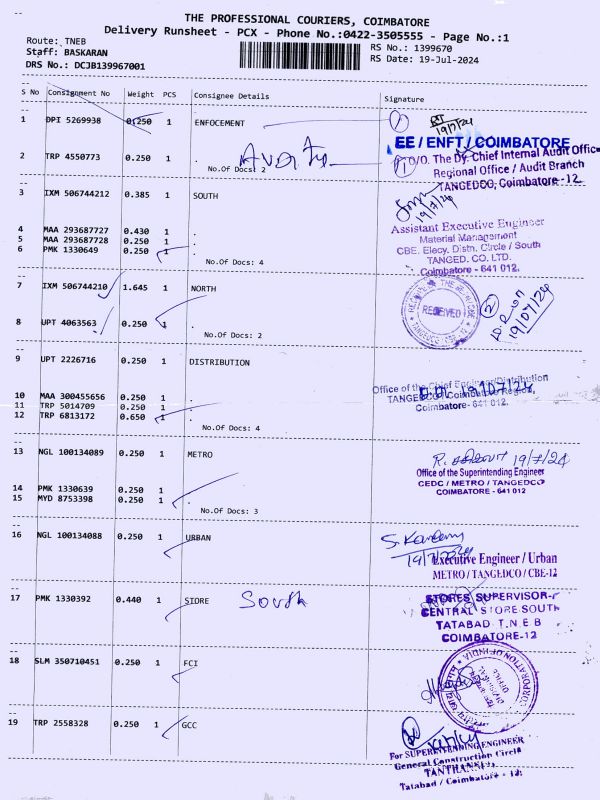 THE PROFESSIONAL COURIERS, COIMBATORE
Delivery Runsheet - PCX - Phone No.:0422-3505555 - Page No.:1
Route: TNEB
RS No.: 1399670
Staff: BASKARAN
RS Date: 19-Jul-2024
DRS No.: DCJB139967001
S No Consignment No Weight PCS Consignee Details Signature
1 DPI 5269938 0.250 1 ENFOCEMENT
19/7/24
EE / ENFT / COIMBATORE
2 TRP 4550773 0.250 1 .
O/O. The Dy. Chief Internal Audit Office
Regional Office / Audit Branch
TANGEDCO, Coimbatore -12
No.Of Docs: 2
3 IXM 506744212 0.385 1 SOUTH
19/7/24
4 MAA 293687727 0.430 1 .
5 MAA 293687728 0.250 1 .
6 PMK 1330649 0.250 1 .
No.Of Docs: 4
Assistant Executive Engineer
Material Management
CBE. Elecy. Distn. Circle / South
TANGED. CO. LTD.
Coimbatore - 641 012.
7 IXM 506744210 1.645 1 NORTH
RECEIVED
2
19/07/24
8 UPT 4063563 0.250 1 .
No.Of Docs: 2
9 UPT 2226716 0.250 1 DISTRIBUTION
Office of the Chief Engineer/Distribution
TANGEDCO, Coimbatore Region,
Coimbatore- 641 012.
10 MAA 300455656 0.250 1 .
11 TRP 5014709 0.250 1 .
12 TRP 6813172 0.650 1 .
No.Of Docs: 4
13 NGL 100134089 0.250 1 METRO
19/7/24
Office of the Superintending Engineer
CEDC / METRO / TANGEDCO
COIMBATORE - 641 012
14 PMK 1330639 0.250 1 .
15 MYD 8753398 0.250 1 .
No.Of Docs: 3
16 NGL 100134088 0.250 1 URBAN
19/7/2024
Executive Engineer / Urban
METRO / TANGEDCO / CBE-12
17 PMK 1330392 0.440 1 STORE
South
STORES SUPERVISOR-I
CENTRAL STORE SOUTH
TATABAD T.N.E.B
COIMBATORE-12
18 SLM 350710451 0.250 1 FCI
19 TRP 2558328 0.250 1 GCC
For SUPERINTENDING ENGINEER
General Construction Circle
Tatabad / Coimbatore - 12